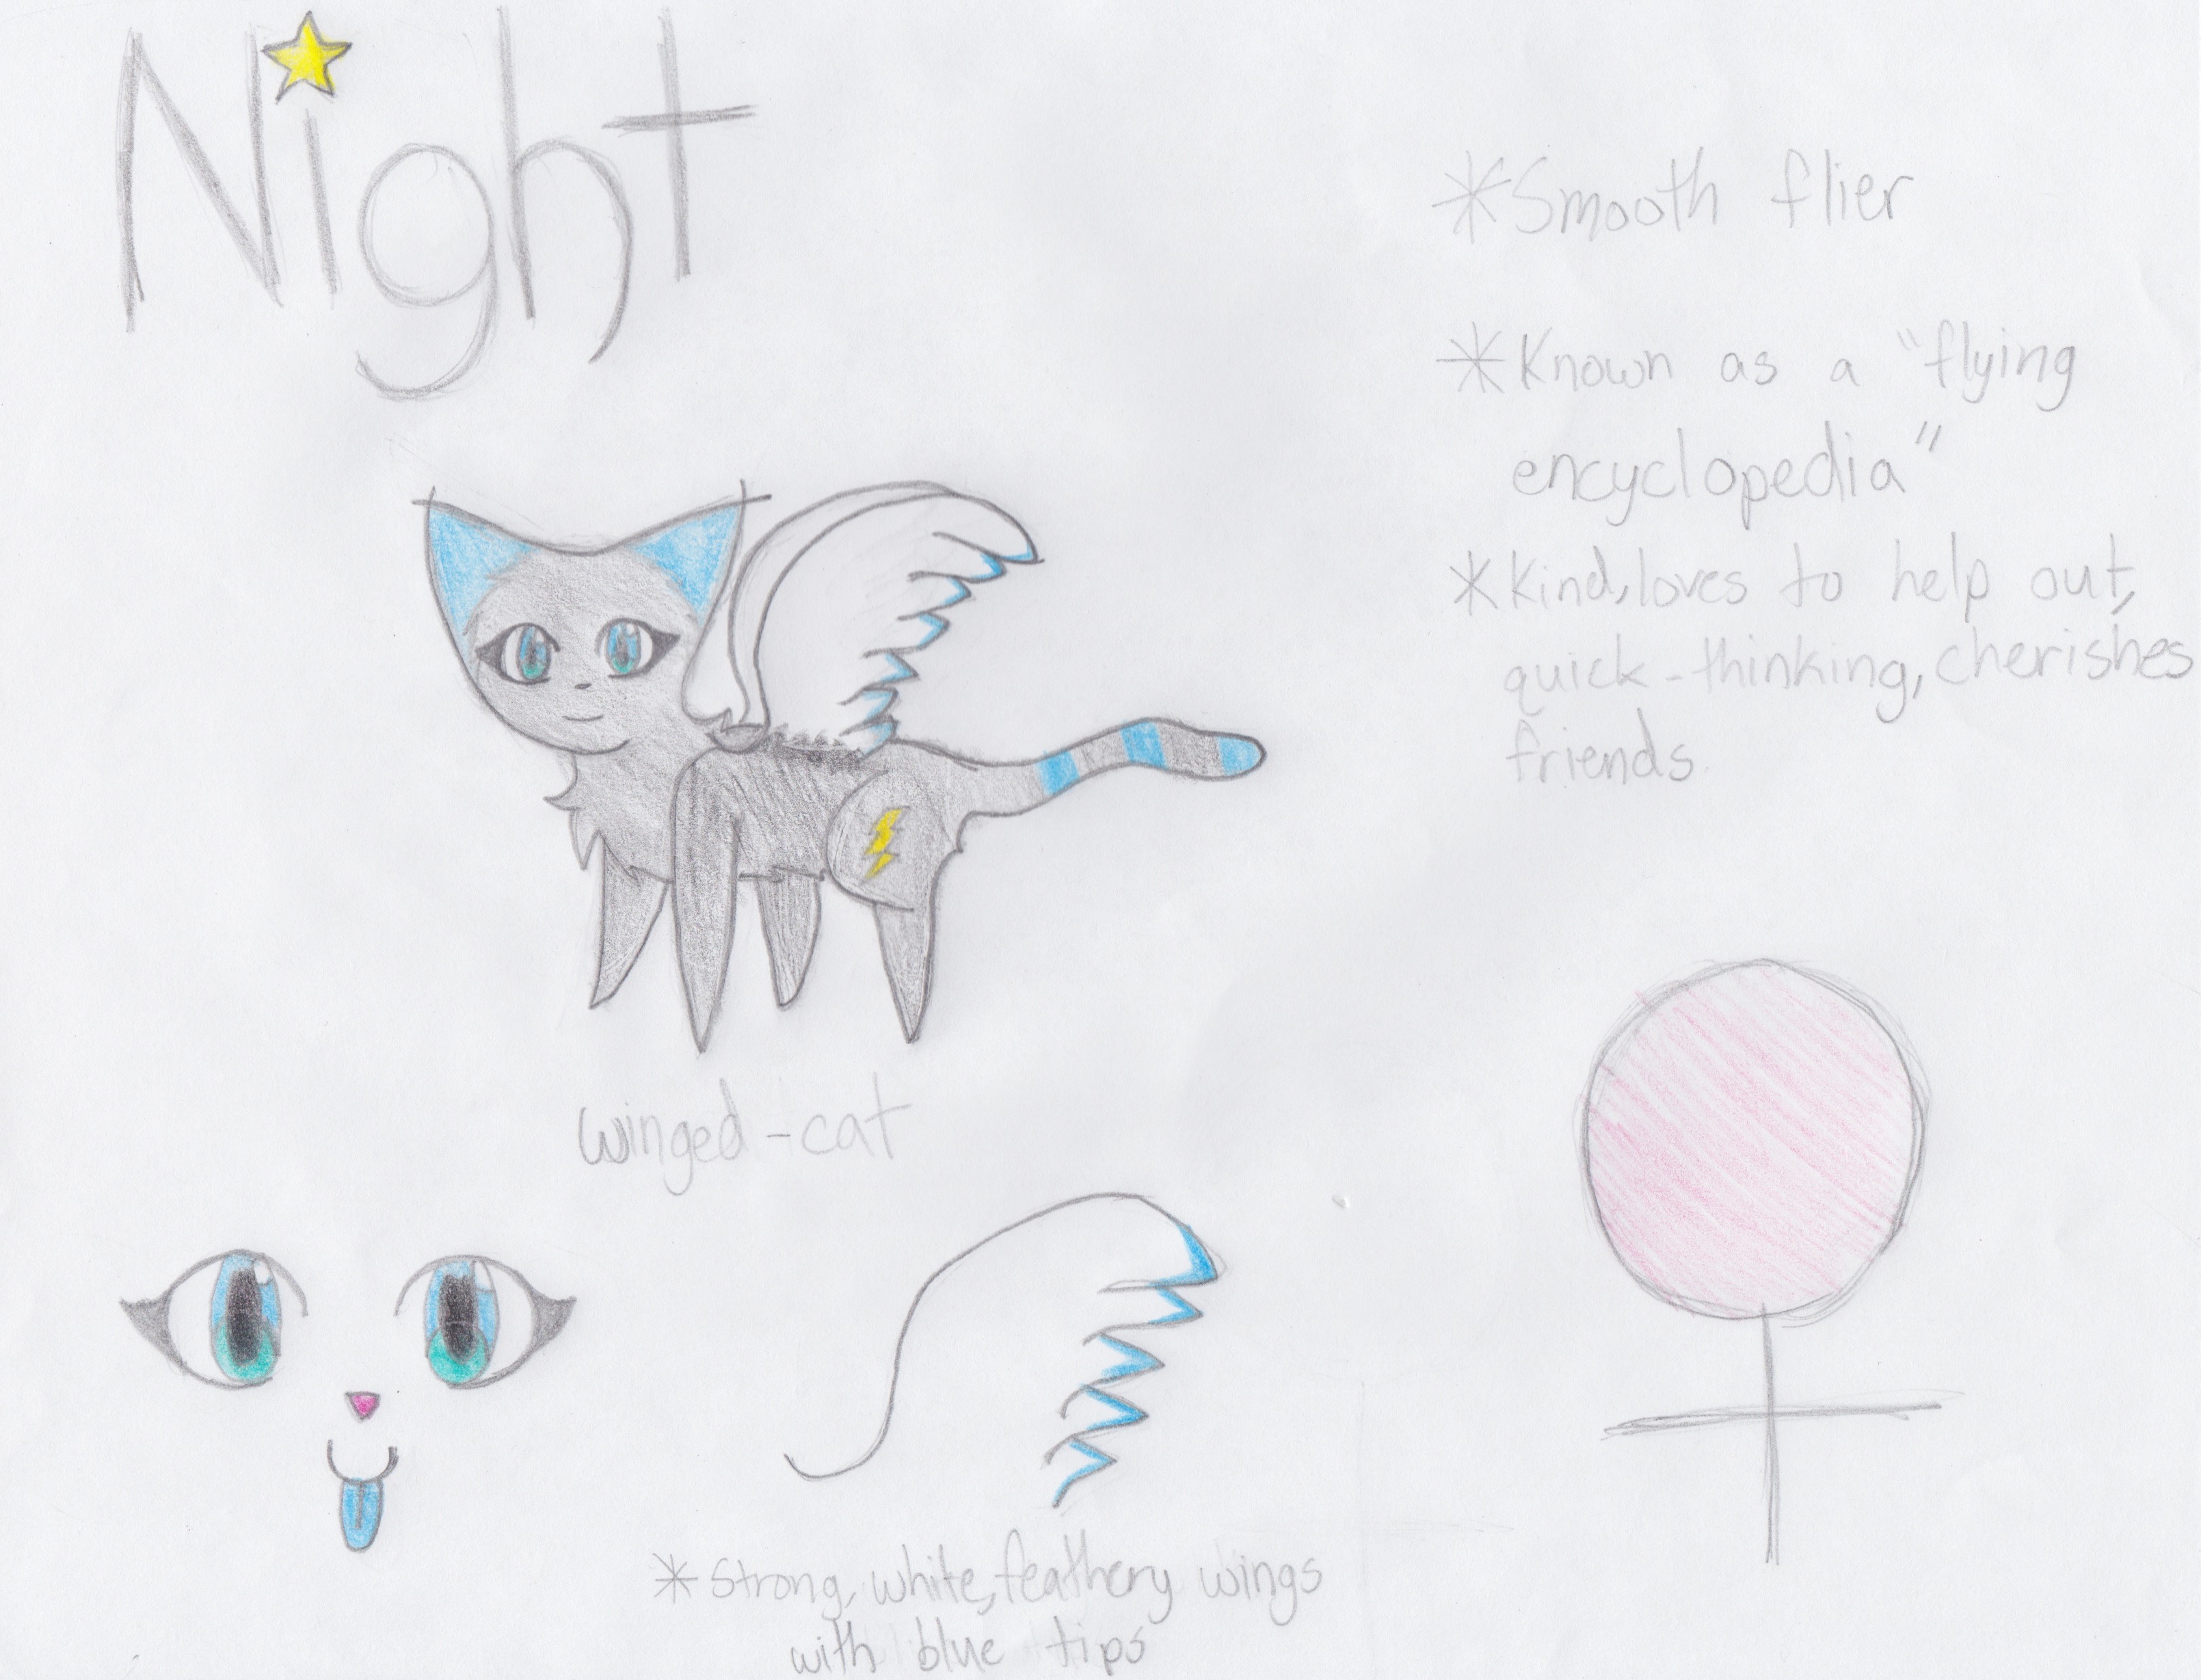 Night
*Smooth flier
*Known as a "flying
encyclopedia"
*Kind, loves to help out,
quick-thinking, cherishes
friends.
winged-cat
*Strong, white, feathery wings
with blue tips